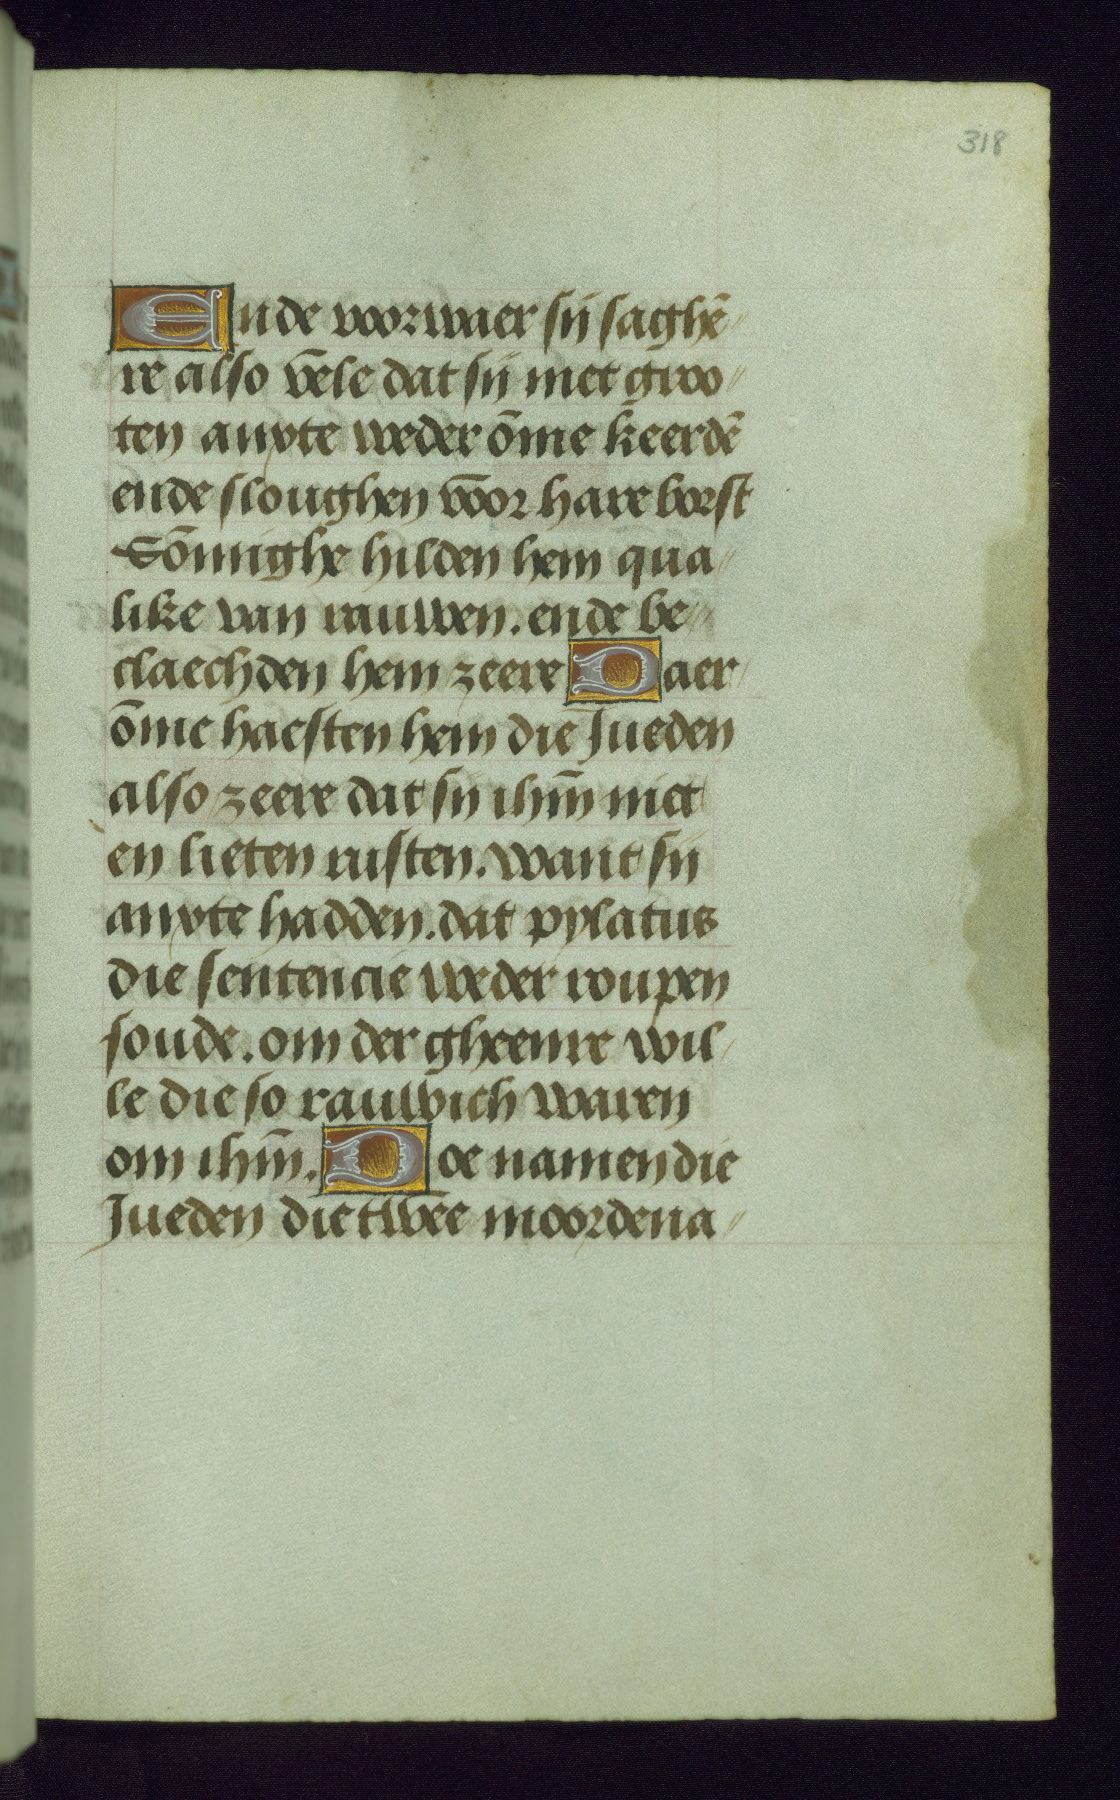 318
Ende voorwaer sij saghē
re also vēle dat sij met groo
ten anxte weder ōme keerdē
ende sloughen vōor hare borst
Sōmighe hilden hem qua
like van rauwen. ende be
claechden hem zeere Daer
ōme haesten hem die Jueden
also zeere dat sij ihm̄ niet
en lieten rusten. want sij
anxte hadden. dat pylatus
die sentencie weder roupen
soude. om der gheenre wil
le die so rauwich waren
om ihm̄. Doe namen die
Jueden die twēe moordena